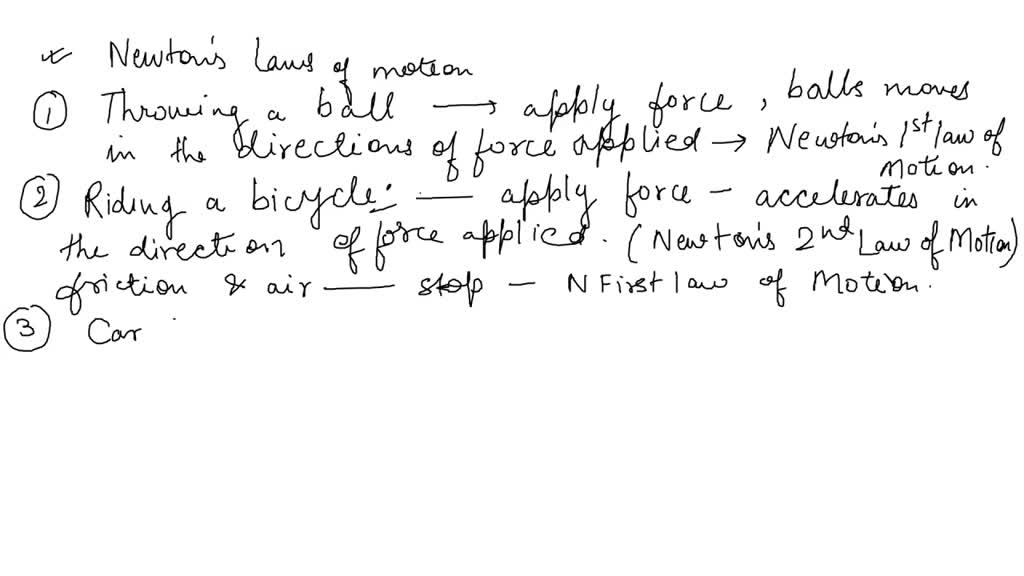 * Newton's Laws of motion
① Throwing a ball → apply force, balls moves
in the directions of force applied → Newton's 1st law of
Motion.
② Riding a bicycle :- — apply force - accelerates in
the direction of force applied. (Newton's 2nd Law of Motion)
friction & air — stop - N First law of Motion.
③ Car